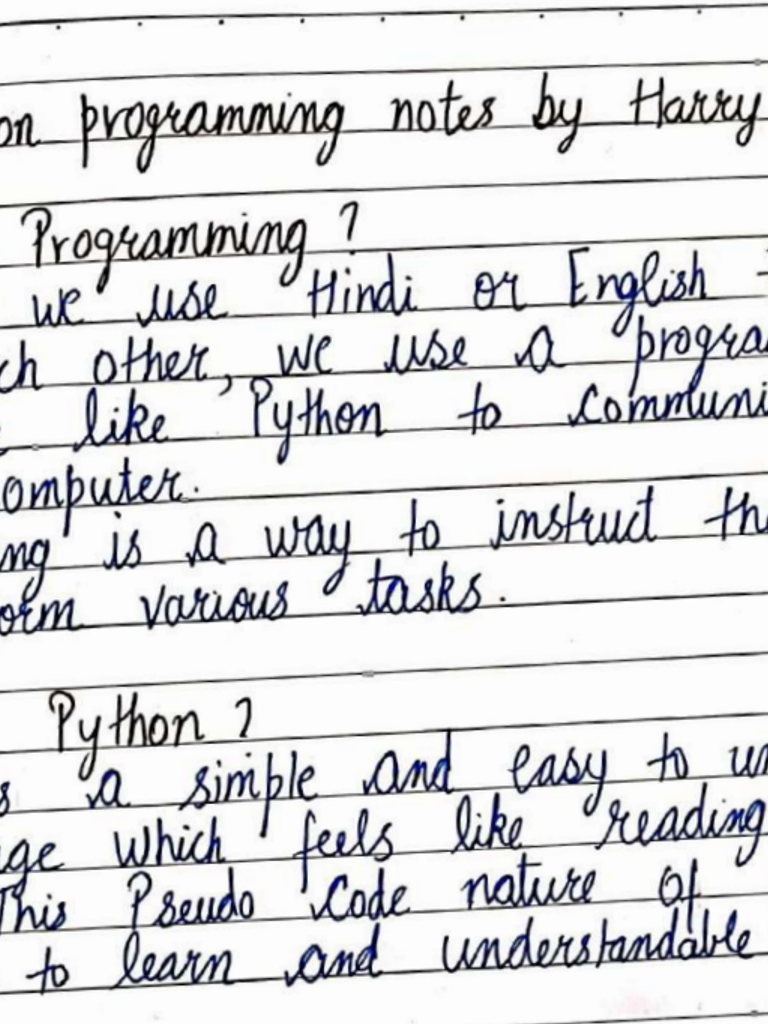 on programming notes by Harry
Programming ?
we use Hindi or English
ch other, we use a progra
like Python to communi
omputer.
ng is a way to instruct th
orm various tasks.
Python ?
s a simple and easy to un
ge which feels like reading
This Pseudo Code nature of
to learn and understandable